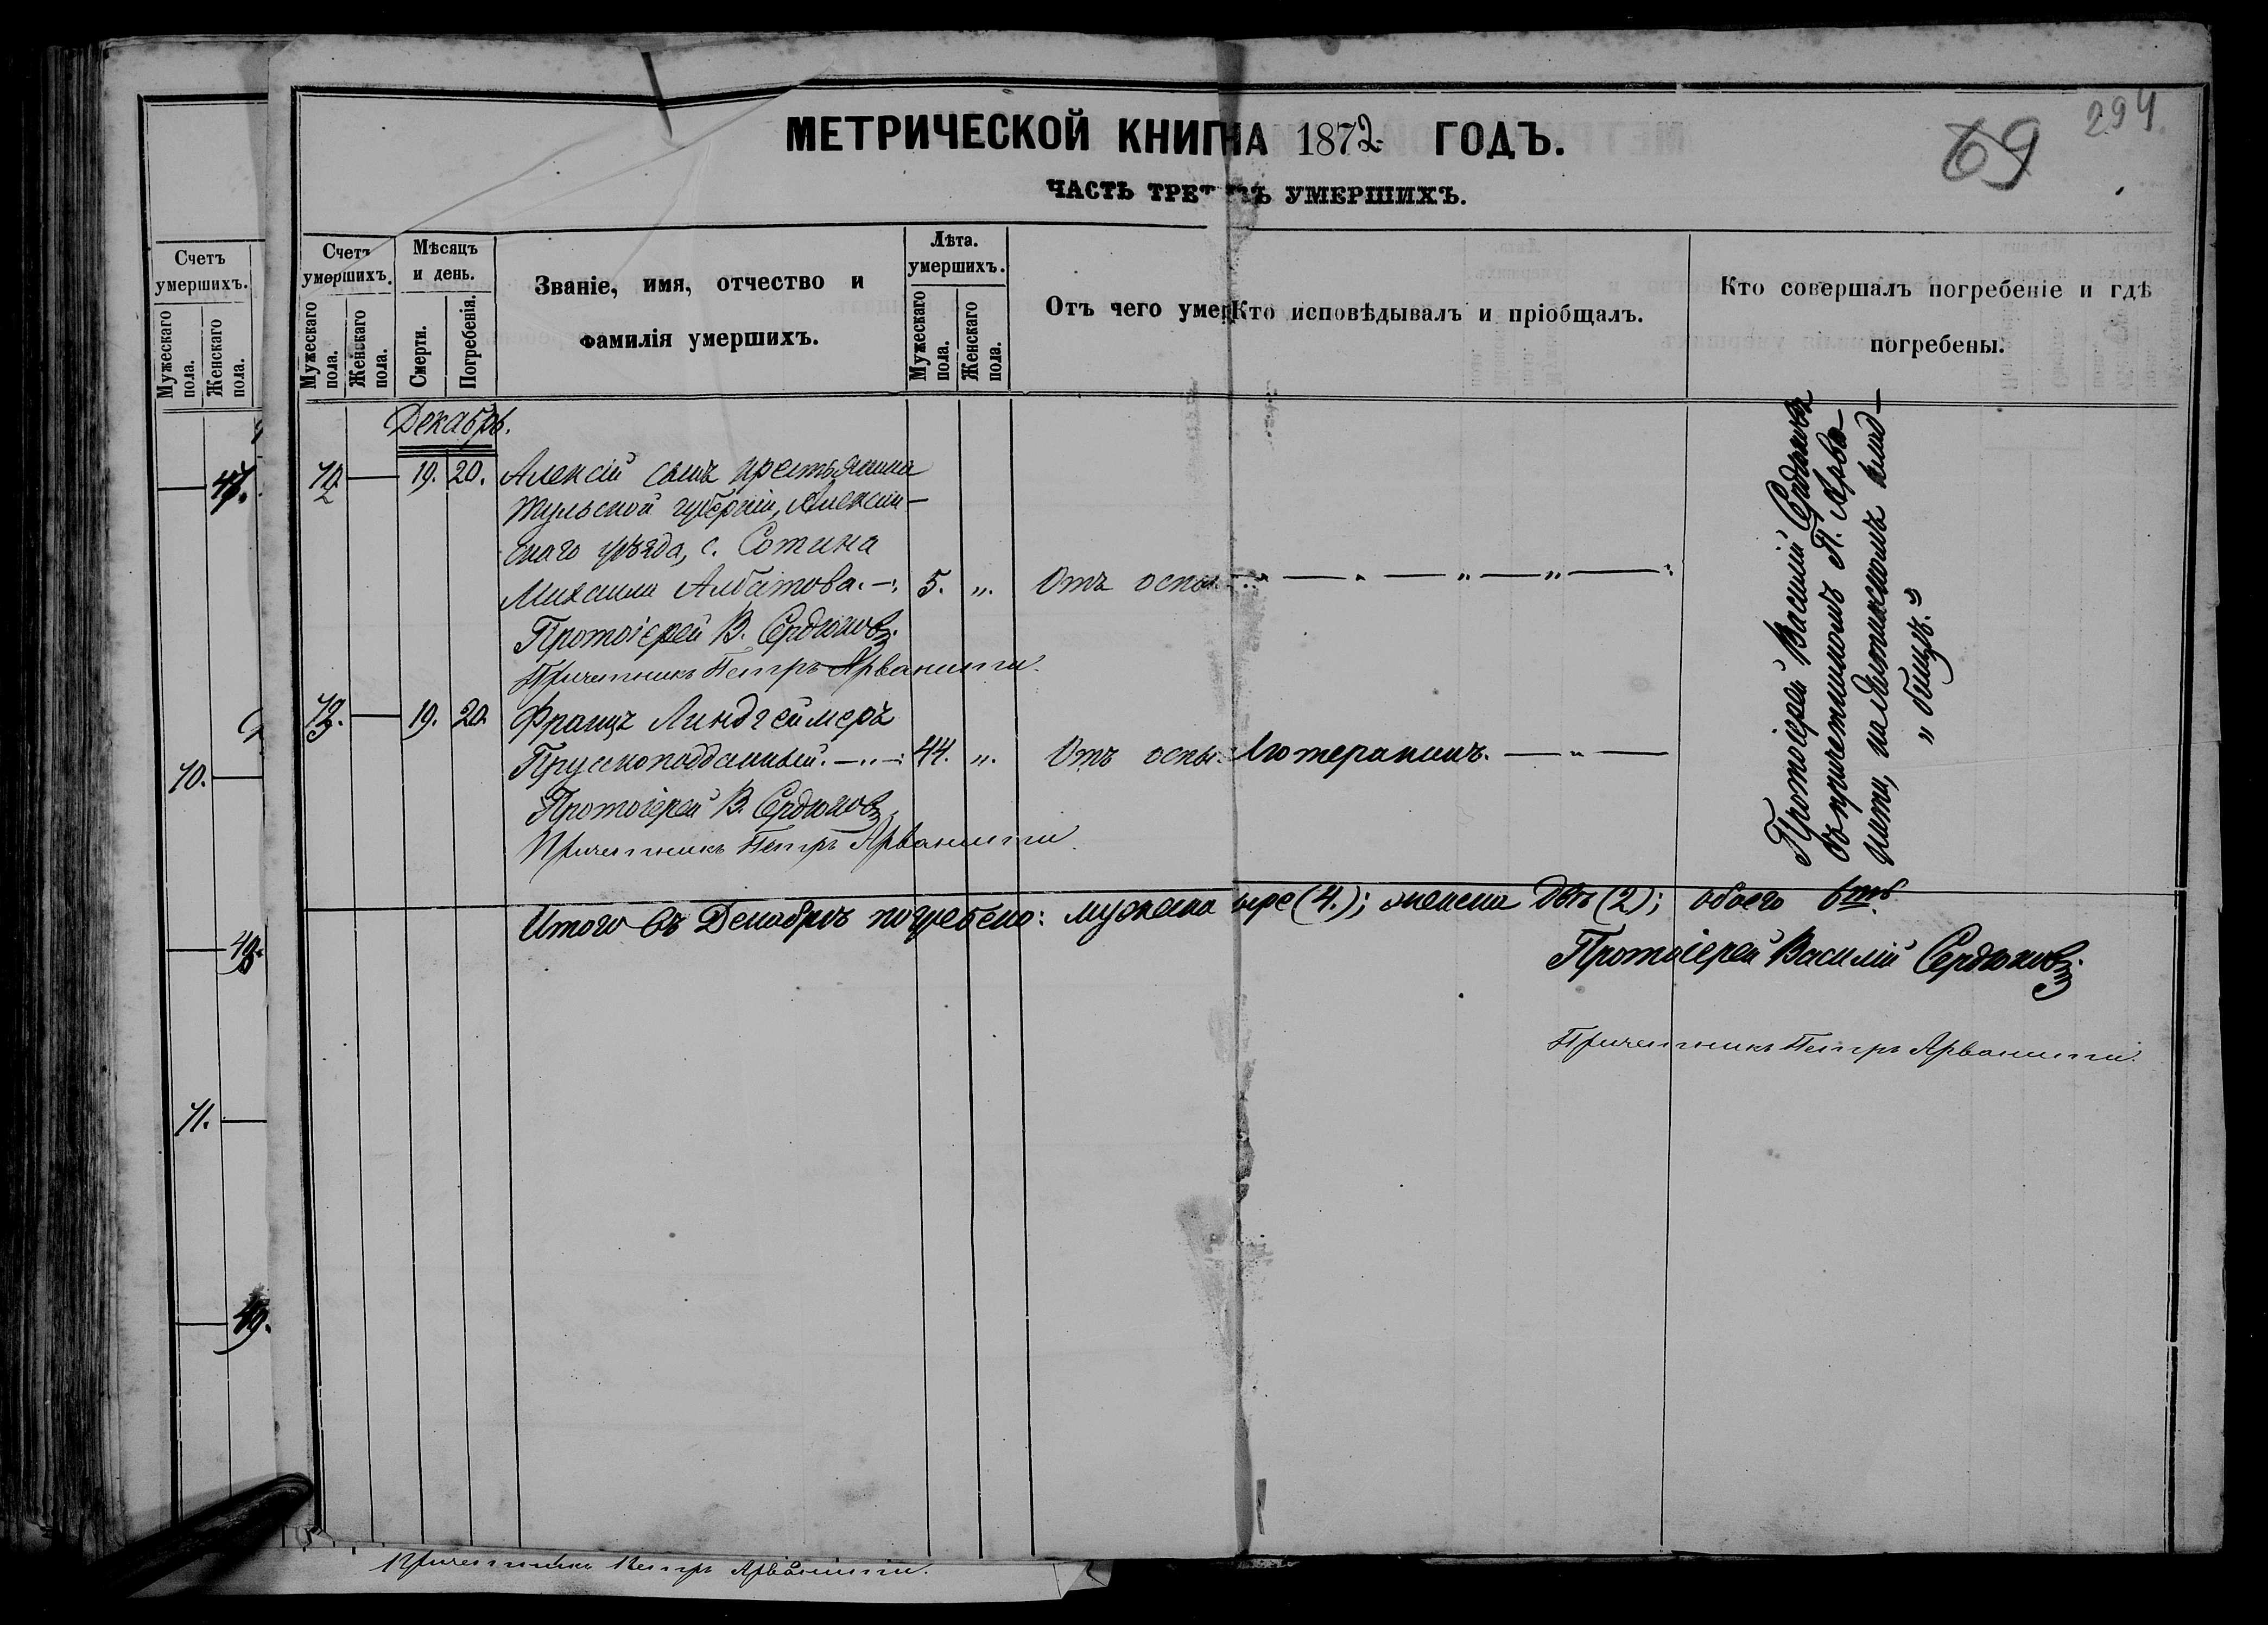 МЕТРИЧЕСКОЙ КНИГ НА 1872 ГОДЪ.
69
294
ЧАСТЬ ТРЕТ УМЕРШИХЪ.
Счетъ умершихъ.
Мужескаго пола.
Женскаго пола.
Счетъ умершихъ.
Мужескаго пола.
Женскаго пола.
Мѣсяцъ и день.
Смерти.
Погребенія.
Званіе, имя, отчество и
фамилія умершихъ.
Лѣта. умершихъ.
Мужескаго пола.
Женскаго пола.
Отъ чего умер
Кто исповѣдывалъ и пріобщалъ.
Кто совершалъ погребеніе и гдѣ
погребены.
Декабрь.
72 — 19. 20. Алексій сынъ крестьянина
Тульской губерніи, Алексин-
скаго уѣзда, с. Сотина
Михаила Албатова. 5. „. Отъ оспы
Протоіерей В. Сердюковъ.
Причетникъ Петръ Арванити.
73. — 19. 20. Францъ Линдгеймеръ
Прусскоподданный. 44. „. Отъ оспы. Лютеранинъ. — „ —
Протоіерей В. Сердюковъ
Причетникъ Петръ Арванити.
Протоіерей Василій Сердюковъ
съ причетникомъ П. Арва-
нити, на клад-
„бищѣ.“
Итого въ Декабрѣ погребено: мужеска ыре (4.); женска двѣ (2); обоего 6ть.
Протоіерей Василій Сердюковъ.
Причетникъ Петръ Арванити.
70.
71.
49.
Причетникъ Петръ Арванити.